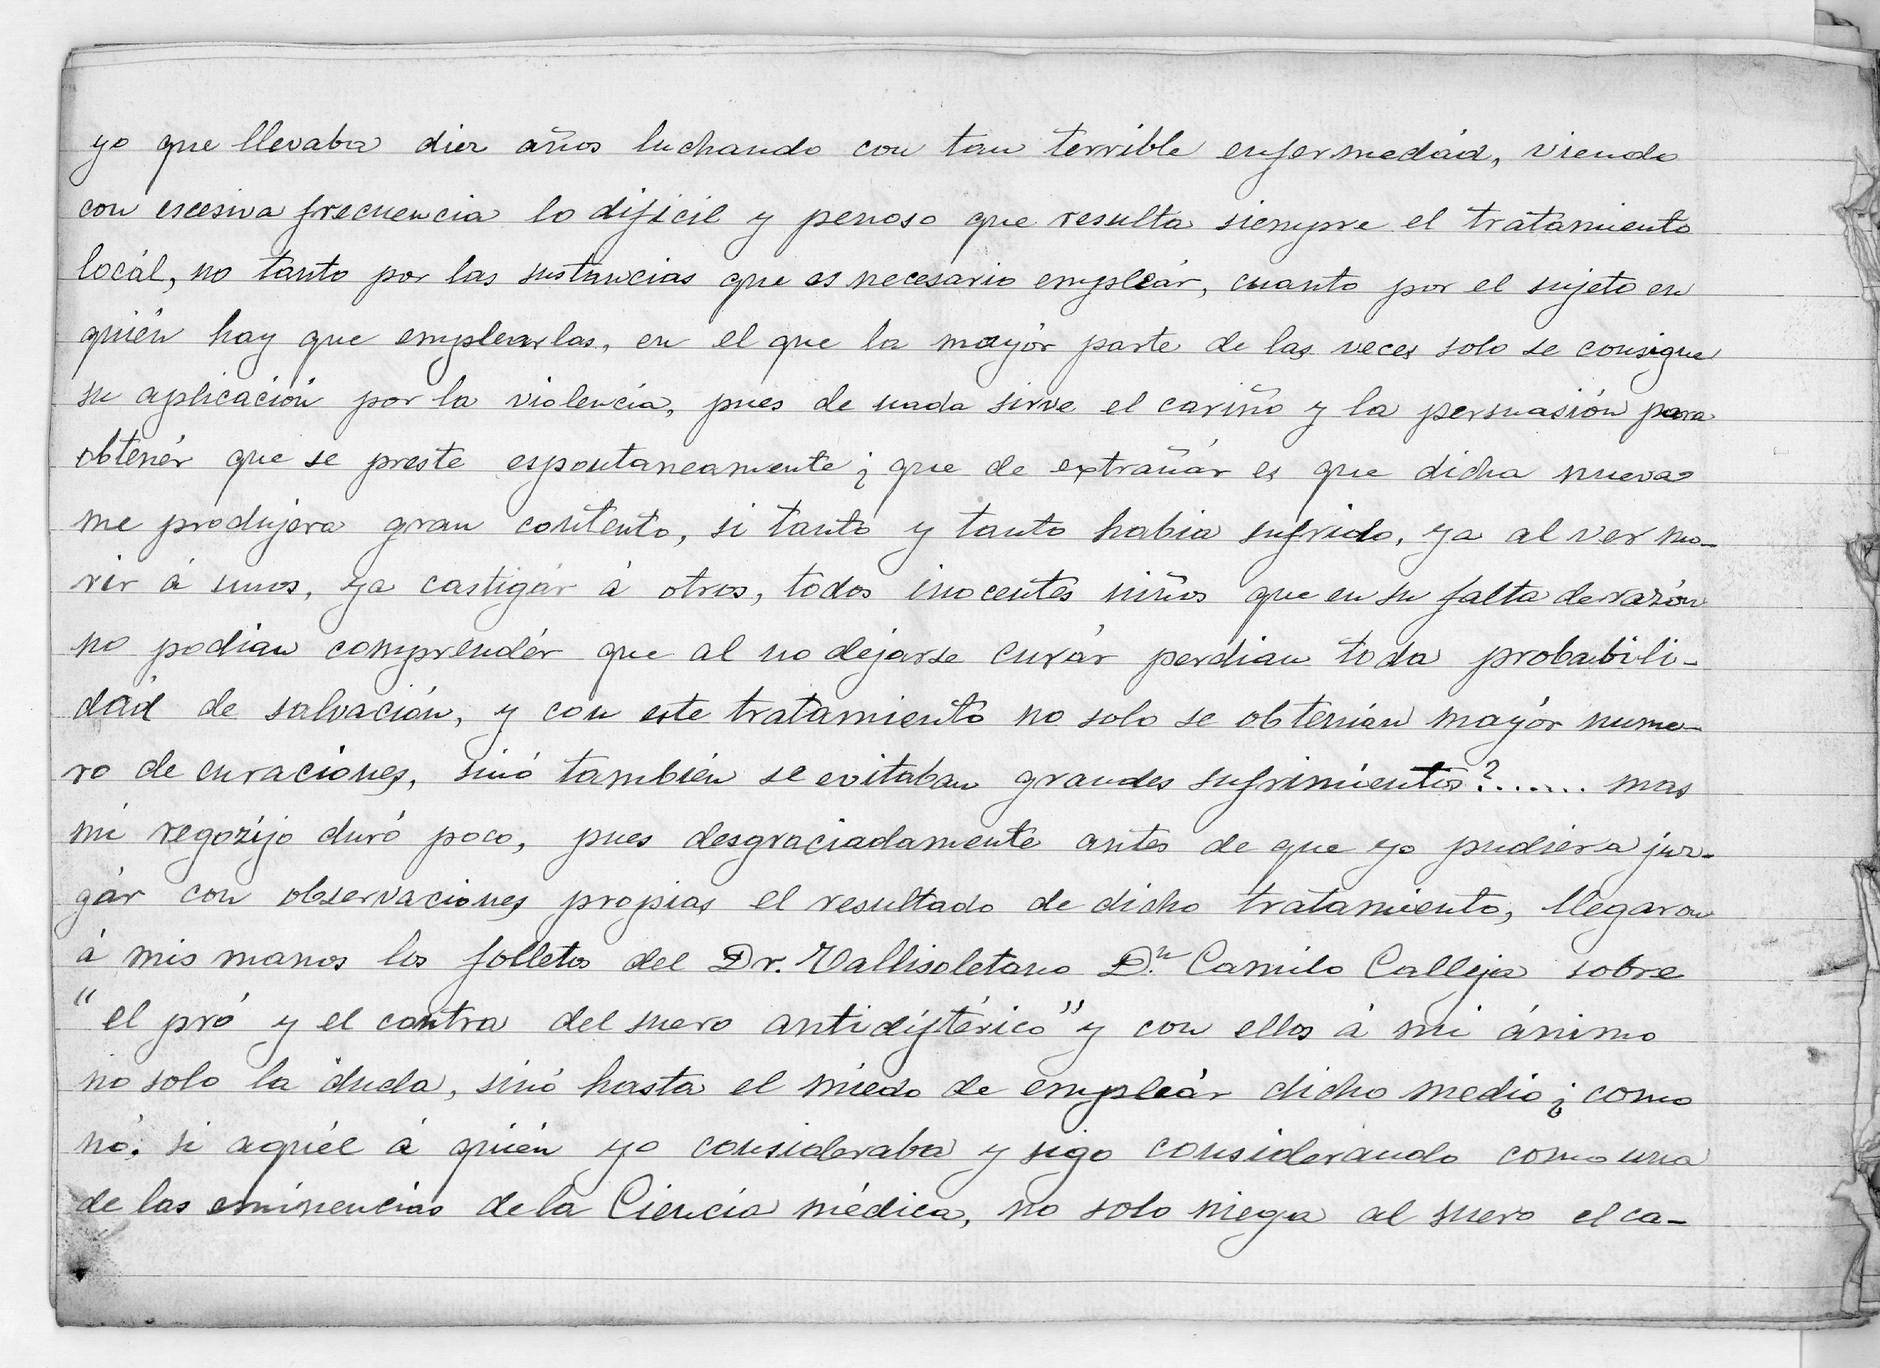 yo que llevaba diez años luchando con tan terrible enfermedád, viendo
con escesiva frecuencia lo dificil y penoso que resulta siempre el tratamiento
locál, no tanto por las sustancias que es necesario empleár, cuanto por el sujeto en
quién hay que emplearlas, en el que la mayór parte de las veces solo se consigue
su aplicación por la violencia, pues de nada sirve el cariño y la persuasión para
obtenér que se preste espontaneamente ¿ que de extrañár es que dicha nueva
me produjera gran contento, si tanto y tanto habia sufrido, ya al ver mo-
rir á unos, ya castigár á otros, todos inocentes niños que en su falta de razón
no podian comprendér que al no dejarse curár perdian toda probabili-
dád de salvación, y con este tratamiento no solo se obtenian mayór nume-
ro de curaciones, sinó también se evitaban grandes sufrimientos?....... mas
mi regozijo duró poco, pues desgraciadamente antes de que yo pudiera juz-
gár con observaciones propias el resultado de dicho tratamiento, llegaron
á mis manos los folletos del Dr. Vallisoletano D.n Camilo Calleja sobre
"el pró y el contra del suero antidiftérico" y con ellos á mi ánimo
no solo la duda, sinó hasta el miedo de empleár dicho medio ¿ como
nó. si aquél á quién yo consideraba y sigo considerando como una
de las eminencias de la Ciencia médica, no solo niega al suero el ca-